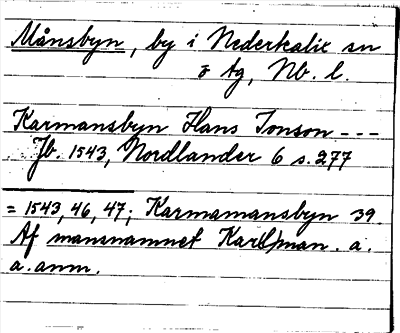 Månsbyn, by i Nederkalix sn
o tg, Nb. l.
Karmansbyn Hans Jonson ---
Jb. 1543, Nordlander 6 s. 277
= 1543, 46, 47; Karmamansbyn 39.
Af mansnamnet Karl man. a.
a. anm.